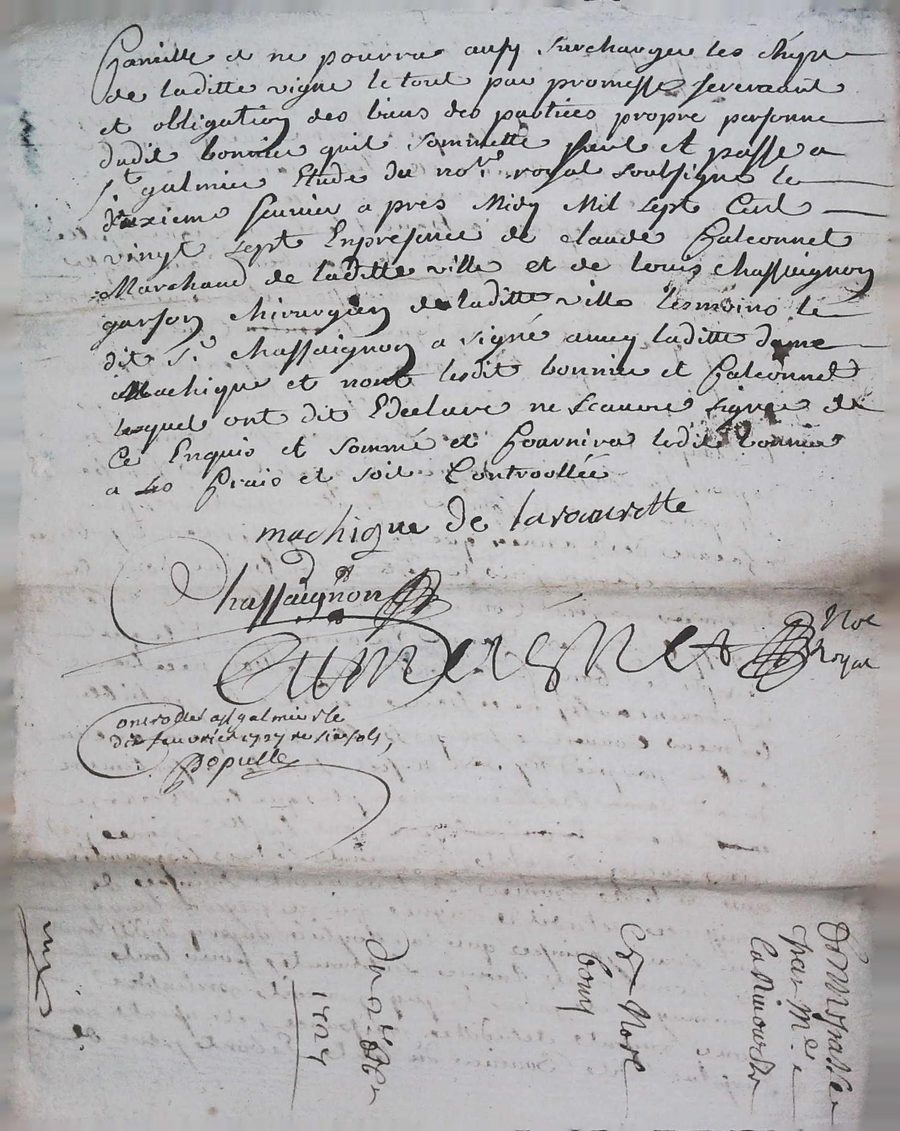 famille et ne pourra aussy surcharger les chept
de laditte vigne le tout par promesse serement
et obligation des biens des parties propre personne
dudit bonnier quil sommette fait et passé a
St galmier Etude du nore royal soubsigné le
deuxieme feuvrier apres Midy Mil sept Cent
vingt sept Enpresence de claude falconnet
Marchand de laditte ville et de louis chassaignon
garson chirurgien de laditte ville tesmoins le
dit Sr chassaignon a signé avecq laditte dame
Machique et nont lesdit bonnier et falconnet
lesquel ont dit Edeclaré ne scavoir signer de
Ce Enquis et sommé et fournira ledit bonnier
a ses frais et soit Controollée
machique de larouvrette
Chassaignon
Noe
Royal
Controllé a st galmier le
dix feuvrier 1727 re six sols
Depuelle
par Me
Cy Nore
bony
Du 2e
1727